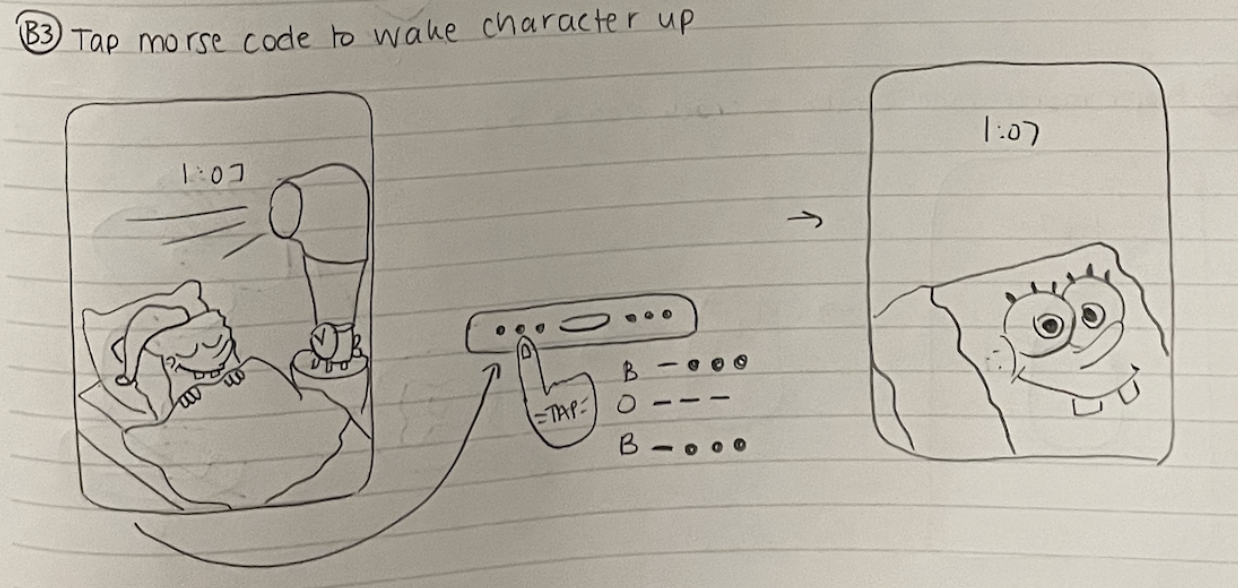 B3 Tap morse code to wake character up
1:07
=TAP=
B — • • •
O — — —
B — • • •
1:07